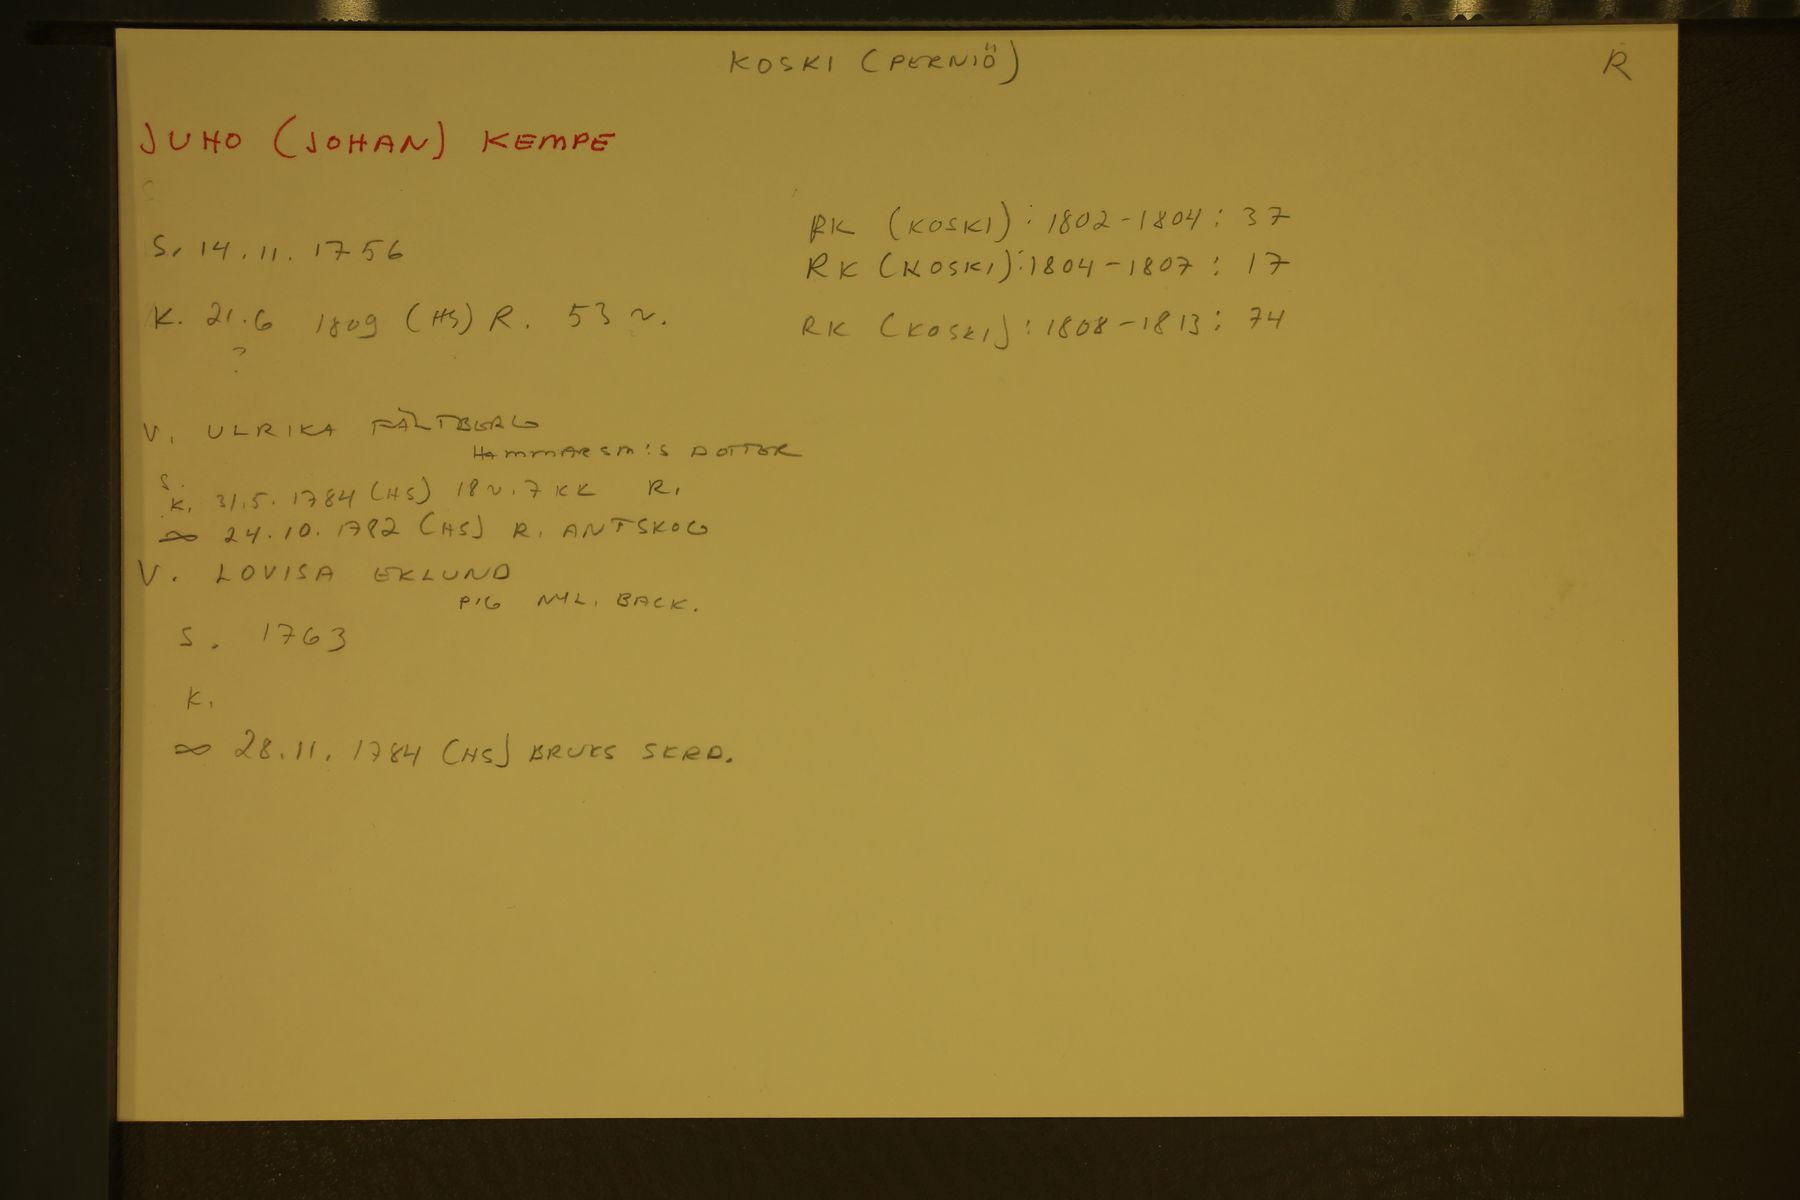 KOSKI (PERNIÖ)
R
JUHO (JOHAN) KEMPE
S. 14.11.1756
K. 21.6 1809 (HS) R. 53 v.
?
RK (KOSKI): 1802-1804: 37
RK (KOSKI): 1804-1807: 17
RK (KOSKI): 1808-1813: 74
V. ULRIKA FÄLTBERG
HAMMARSM:S DOTTER
S.
K. 31.5.1784 (HS) 18 v. 7 KK R.
∞ 24.10.1782 (HS) R. ANTSKOG
V. LOVISA EKLUND
PIG NYL. BACK.
S. 1763
K.
∞ 28.11.1784 (HS) BRUKS SKRD.